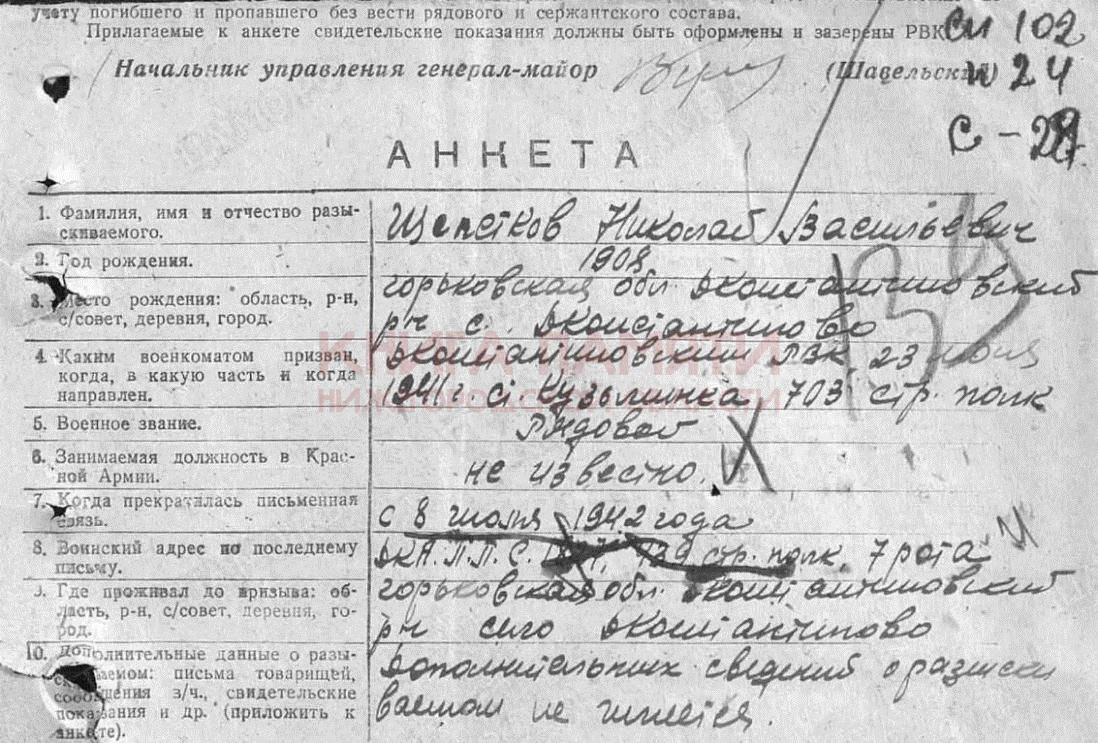 учету погибшего и пропавшего без вести рядового и сержантского состава.
Прилагаемые к анкете свидетельские показания должны быть оформлены и заверены РВК.
Начальник управления генерал-майор (Шавельский)
см 102
н 24
С - 29
АНКЕТА
1. Фамилия, имя и отчество разы-
скиваемого.
Щепетков Николай Васильевич
2. Год рождения.
1908
3. Место рождения: область, р-н,
с/совет, деревня, город.
горьковская обл. Дконстантиновский
р-н с. Дконстантиново
4. Каким военкоматом призван,
когда, в какую часть и когда
направлен.
Дконстантиновским РВК 23 июня
1941 г. ст. Кузьминка 703 стр. полк
5. Военное звание.
Рядовой
6. Занимаемая должность в Крас-
ной Армии.
не известно.
7. Когда прекратилась письменная
связь.
с 8 июля 1942 года
8. Воинский адрес по последнему
письму.
ДКА. П.П.С. стр. полк, 7 рота
9. Где проживал до призыва: об-
ласть, р-н, с/совет, деревня, го-
род.
горьковская обл. Дконстантиновский
р-н село Дконстантиново
10. Дополнительные данные о разы-
скиваемом: письма товарищей,
сообщения з/ч., свидетельские
показания и др. (приложить к
анкете).
Дополнительных сведений о разыски
ваемом не имеется.
КНИГА ПАМЯТИ
НИЖЕГОРОДСКОЙ ОБЛАСТИ